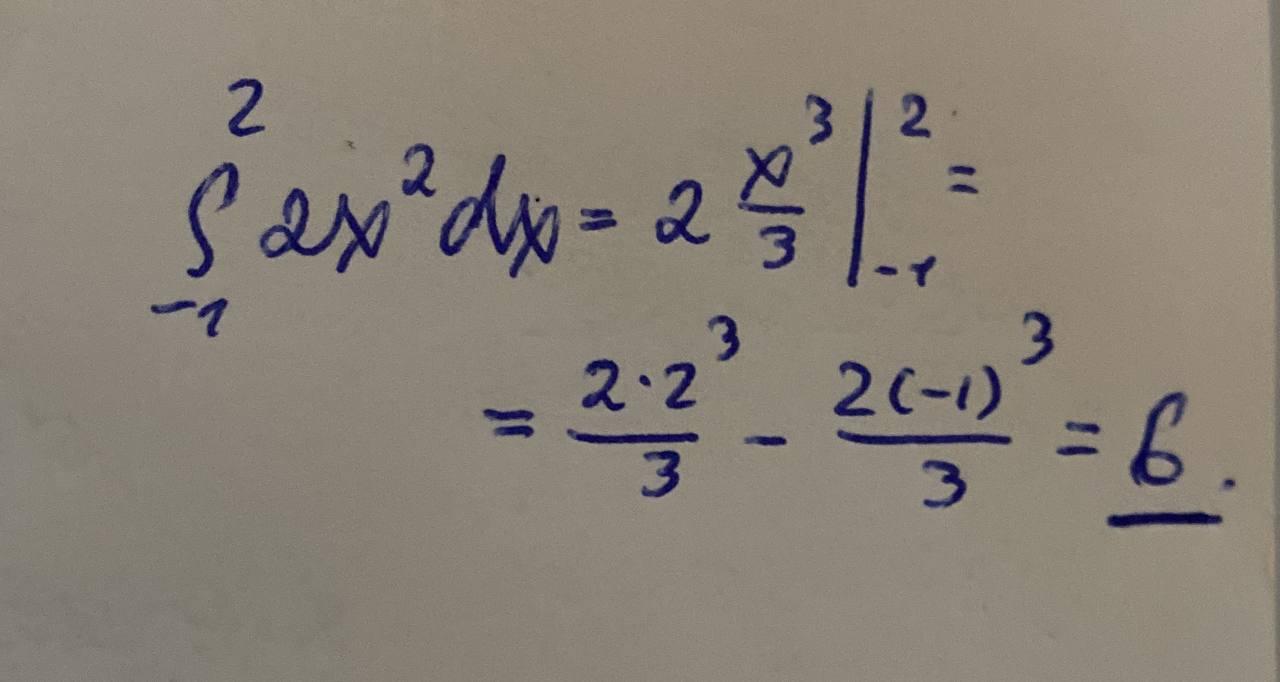 ∫₋₁² 2x² dx = 2 x³/3 |₋₁² =
= 2·2³/3 - 2(-1)³/3 = 6.